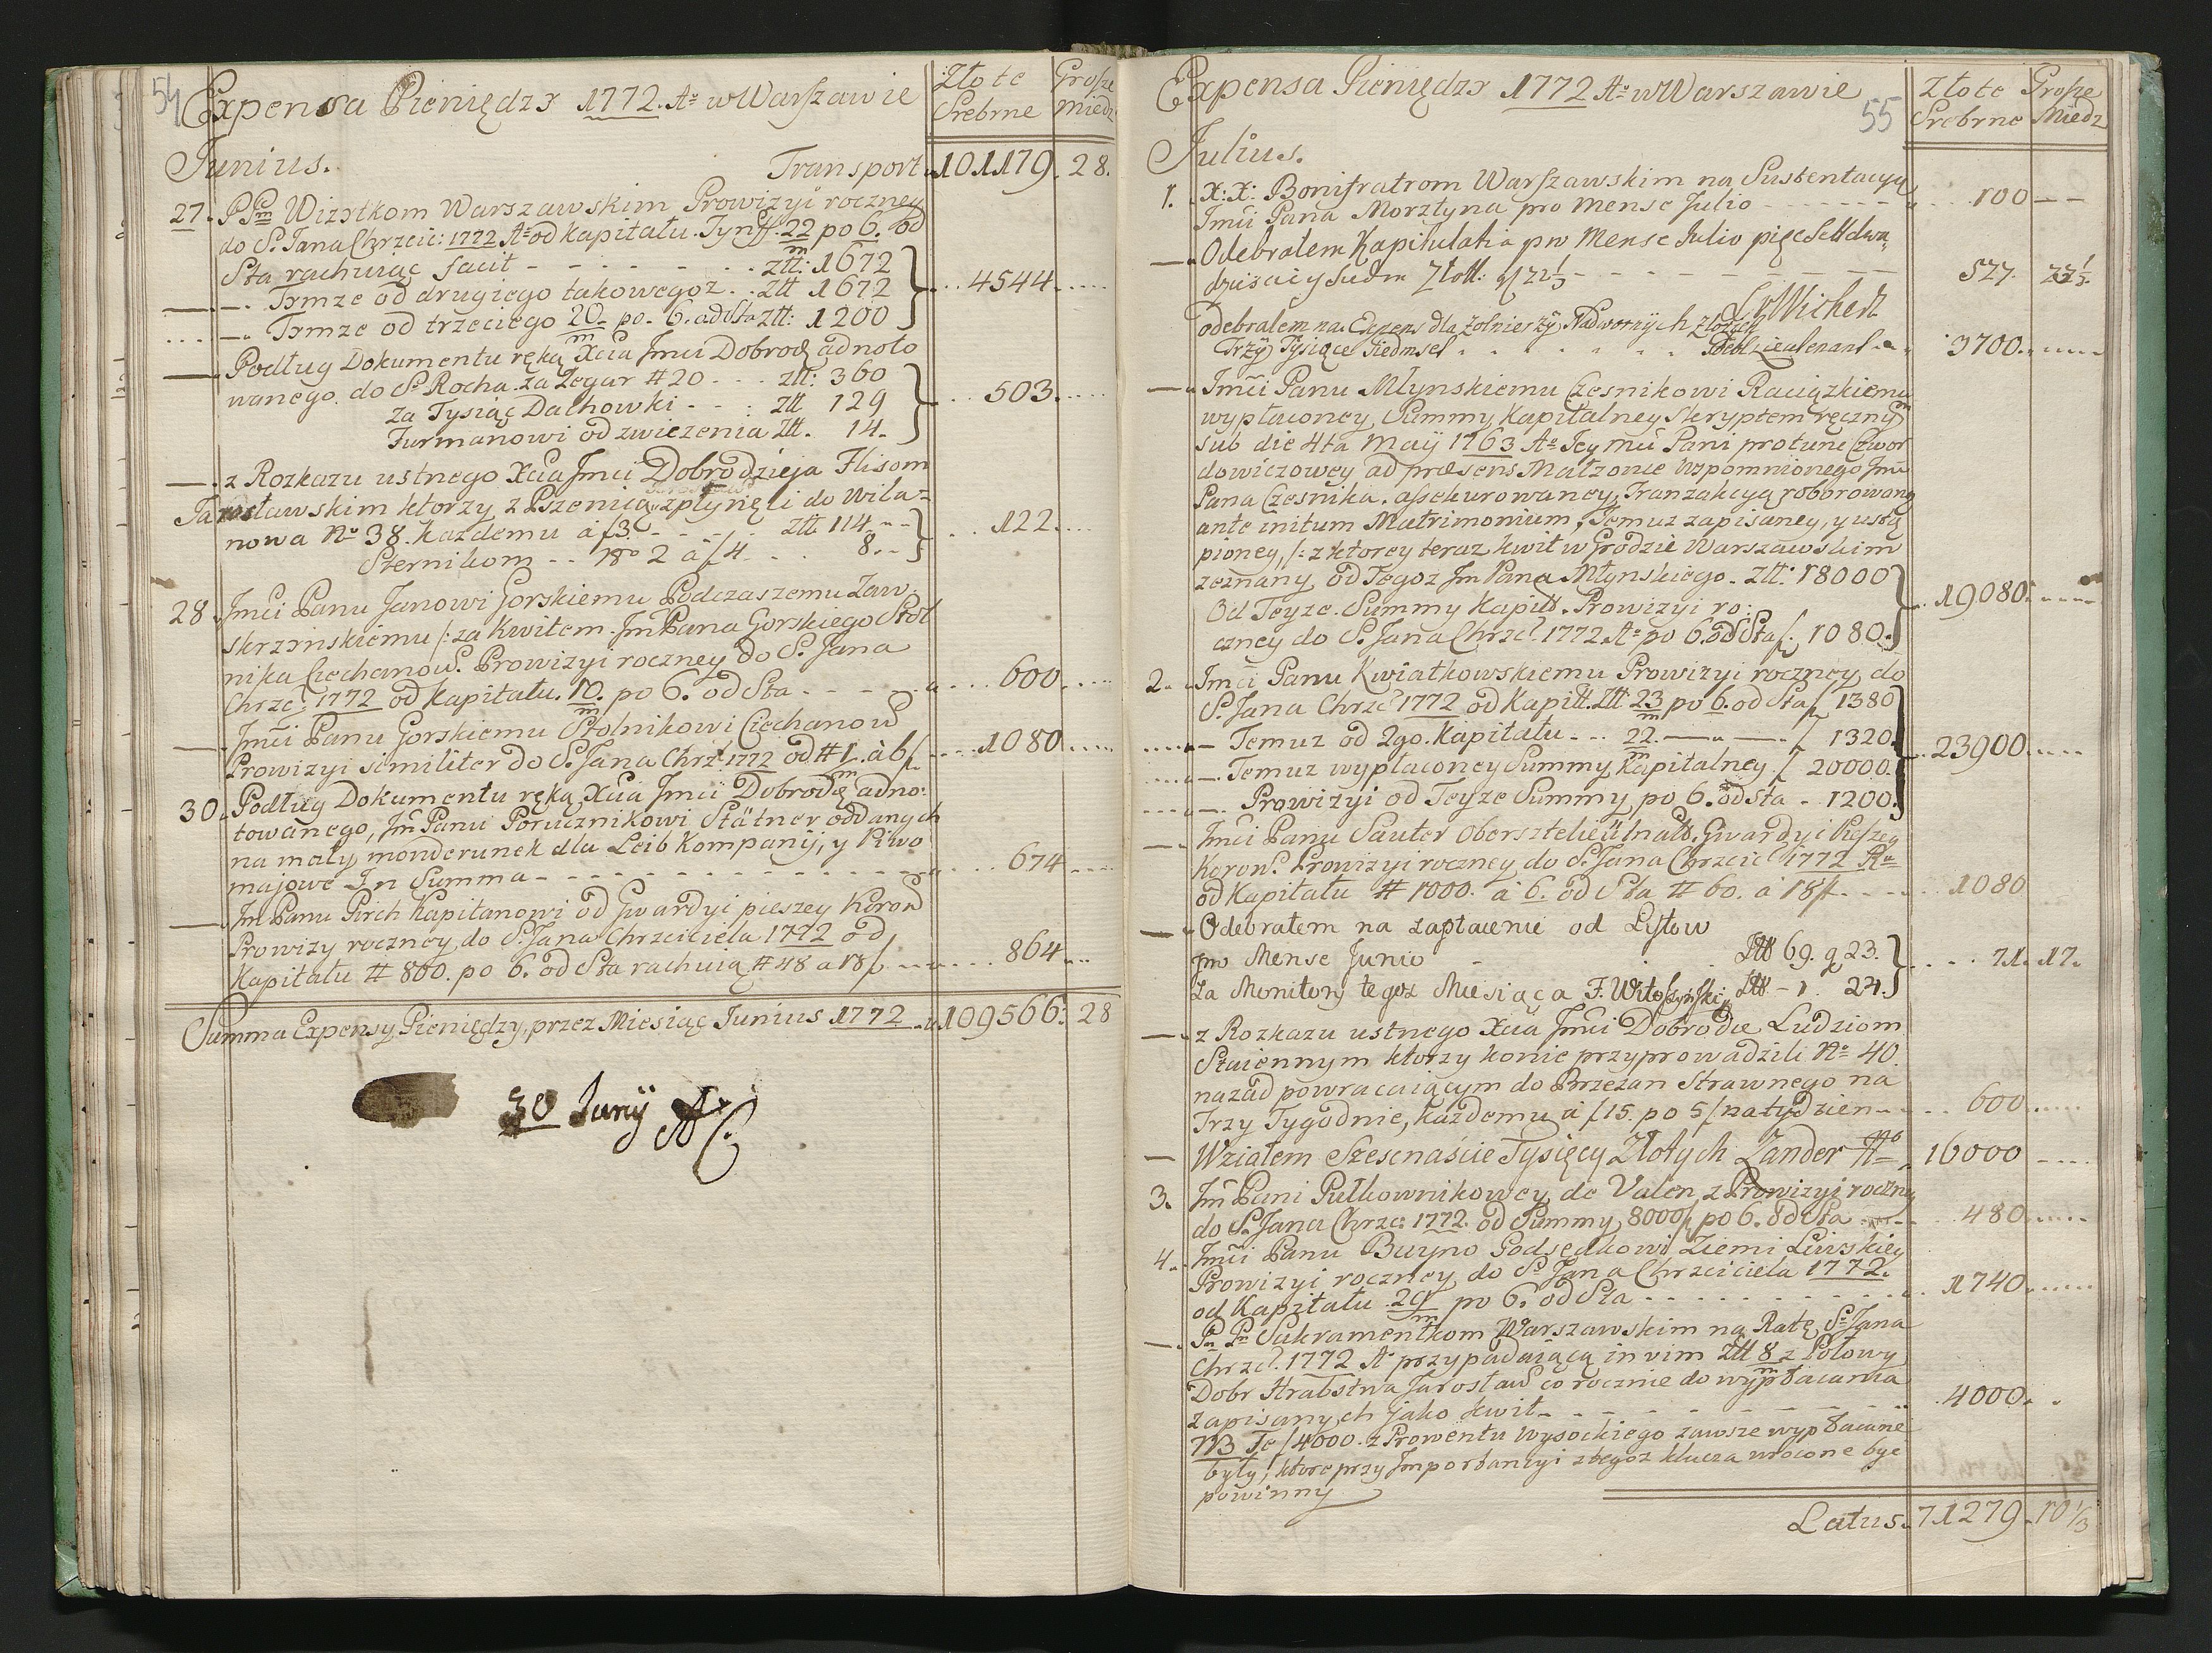 54
Expensa Pieniędzy 1772. Ao w Warszawie
Złote Srebrne
Grosze Miedz
Junius.
Transport 101179. 28.
27. PPm Wizytkom Warszawskim Prowizyi roczney
do S. Jana Chrzcic: 1772 Ao od Kapitału Tynff. 22/m po 6. od
Sta rachuiąc facit - - - - ztt: 1672
— Trmze od drugiego takowegoz ztt 1672 } 4544
— Trmze od trzeciego 20/m po 6. od sta ztt: 1200
— Podług Dokumentu ręką Xcia Jmci Dobrodz adnoto
wanego do S. Rocha za Zegar # 20 - - ztt: 360
za Tysiąc Dachowki - - ztt 129 } 503
Furmanowi od zwiezenia ztt. 14.
— z Rozkazu ustnego Xcia Jmci Dobrodzieja Flisom
Jarosławskim ktorzy z Pszenicą zpłynęli do Wila=
nowa No 38. Kazdemu á f 3. - - ztt 114 } 122
Sternikom - - No 2 á f 4. - - 8.
28. Jmci Panu Janowi Gorskiemu Podczaszemu Zaw
skrzynskiemu /: za Kwitem Jm Pana Gorskiego Stol
nika Ciechanow. Prowizyi roczney do S. Jana
Chrzc: 1772 od Kapitału 10/m po 6. od Sta - - - 600
— Jmci Panu Gorskiemu Stolnikowi Ciechanow
Prowizyi similiter do S. Jana Chrz: 1772 od # 1/m à 6 f - - 1080
30. Podług Dokumentu ręką Xcia Jmci Dobrodz adno:
towanego, Jm Panu Porucznikowi Stätner oddanych
na mały monderunek dla Leib Kompanij, y Piwo
majowe In Summa - - - - - 674
— Jm Panu Pirch Kapitanowi od Gwardyi pieszey Koron
Prowizy roczney do S. Jana Chrzciciela 1772 od
Kapitału # 800. po 6. od Sta rachuią # 48 a 18 f - - 864
Summa Expensy Pieniędzy, przez Miesiąc Junius 1772 109566: 28
30 Junij
Expensa Pieniędzy 1772 Ao w Warszawie
55
Złote Srebrne
Grosze Miedz
Julius.
1. X: X: Bonifratrom Warszawskim na Sustentacyą
Jmci Pana Morsztyna pro Mense Julio - - - 100 — —
— Odebrałem Kapitulatia pro Mense Julio pięcset dwa
dziscia y siedm Złott: gl 22 1/3 - - - 527. 22 1/3.
odebrałem na Expens dla Zołnierzy Nadwornych złotych
Trzy Tysiące Siedmset - - - 3700.
— Jmci Panu Młynskiemu Czesnikowi Raciązkiemu
wypłaconey Summy Kapitalney Skryptem ręczny
sub die 4ta Maij 1763 Ao Jey mci Pani protunc Czwor
dowiczowey ad præsens Małzonce wspomnionego Jmci
Pana Czesnika, assekurowaney, Tranzakcyą roborowaną
ante initum Matrimonium, Temuz zapisaney, y ustą
pioney, /: z ktorey teraz kwit w Grodzie Warszawskim
zeznany od Tegoz Jm Pana Młynskiego. ztt: 18000
Od Teyze Summy Kapitt. Prowizyi ro: } 19080
czney do S. Jana Chrzc: 1772 Ao po 6. od Sta f: 1080.
2. Jmci Panu Kwiatkowskiemu Prowizyi roczney do
S. Jana Chrzc: 1772 od Kapitt. ztt 23/m po 6. od Sta f 1380
— Temuz od 2go. Kapitału - - 22/m — — f 1320.
— Temuz wypłaconey Summy Kapitalney f 20000. } 23900
— Prowizyi od Teyze Summy po 6. od sta - 1200.
— Jmci Panu Sauter Gwardyi Pieszey
Koron. Prowizyi roczney do S. Jana Chrzcic: 1772 Ao
od Kapitału # 1000. à 6. od Sta # 60. á 18 f - - 1080
— Odebrałem na zapłacenie od Listow
pro Mense Junio - ztt 69. g 23. } 71. 17.
Za Monitory tegoz Miesiąca F. ztt - 1. 24.
— z Rozkazu ustnego Xcia Jmci Dobrodz Ludziom
Staiennym ktorzy konie przyprowadzili No 40
nazad powracaiącym do Brzezan Strawnego na
Trzy Tygodnie, każdemu á f 15. po 5 f na tydzien - - 600
— Wziąłem Szesnaście Tysięcy Złotych Zander 16000
3. Jm Pani Pułkownikowey de Valen z Prowizyi roczney
do S. Jana Chrzc: 1772. od Summy 8000 f po 6. od Sta 480
4. Jmci Panu Buyno Podsędkowi Ziemi Liwskiey
Prowizyi roczney do S. Jana Chrzciciela 1772.
od Kapitału 29/m po 6. od Sta - - - 1740
— Pn Pn Sakramentkom Warszawskim na Ratę S. Jana
Chrzc: 1772 Ao przypadaiącą in vim ztt 8/m z Połowy
Dobr Hrabstwa Jarosław co rocznie do wypłacania
zapisanych jako kwit - - - 4000.
NB Te f 4000. z Prowentu Wysockiego zawsze wypłacane
były, ktore przy Importancyi z tegoz klucza wrocone być
powinny
Latus. 71279. 10 1/3